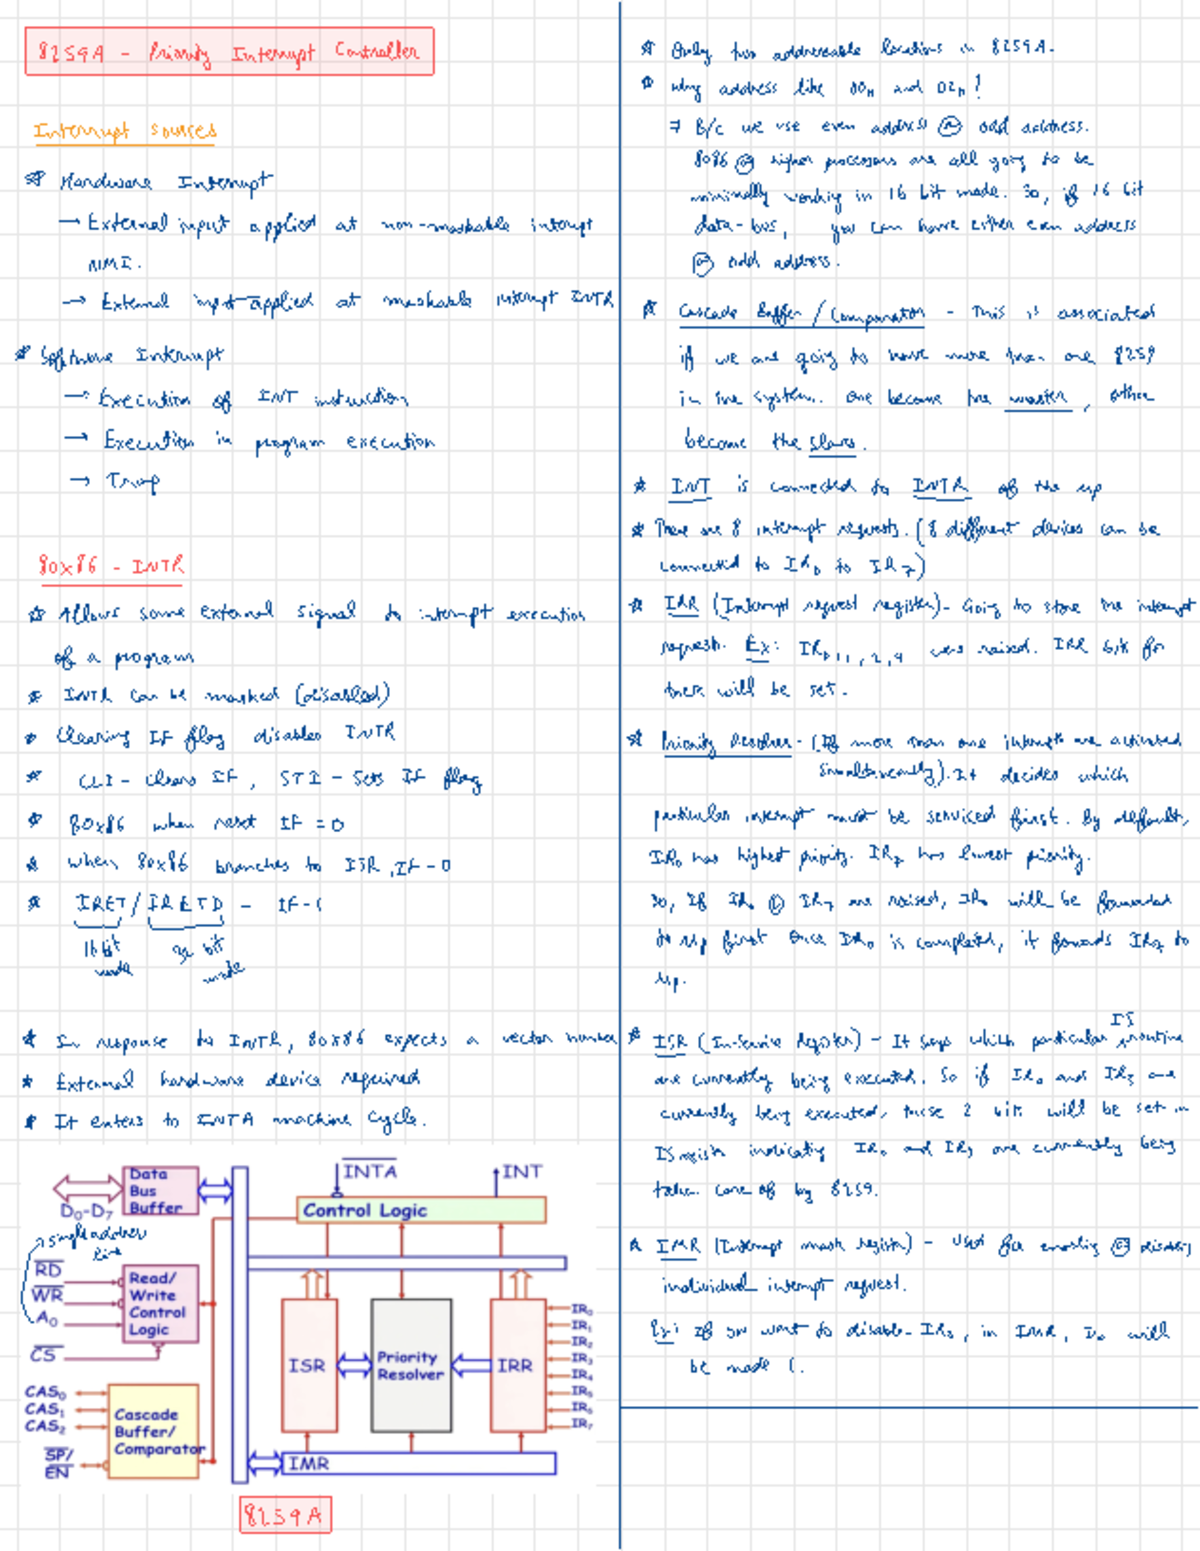 8259A - Priority Interrupt Controller
Interrupt sources
☆ Hardware Interrupt
→ External input applied at non-maskable interrupt
NMI.
→ External input applied at maskable interrupt INTR
☆ Software Interrupt
→ Execution of INT instruction
→ Execution in program execution
→ Trap
80x86 - INTR
☆ Allows some external signal to interrupt execution
of a program
☆ INTR can be masked (disabled)
☆ Clearing IF flag disables INTR
☆ CLI - clears IF, STI - Sets IF flag
☆ 80x86 when reset IF = 0
☆ when 80x86 branches to ISR, IF - 0
☆ IRET / IRETD - IF - 1
16 bit 32 bit
mode mode
☆ In response to INTR, 80x86 expects a vector number
☆ External hardware device required
☆ It enters to INTA machine cycle.
INTA INT
Data
Bus
Buffer
D0-D7
Control Logic
single address
line
RD
WR
A0
CS
Read/
Write
Control
Logic
ISR
Priority
Resolver
IRR
IR0
IR1
IR2
IR3
IR4
IR5
IR6
IR7
CAS0
CAS1
CAS2
SP/
EN
Cascade
Buffer/
Comparator
IMR
8259A
☆ Only two addressable locations in 8259A.
☆ why address like 00H and 02H?
⇒ B/c we use even address or odd address.
8086 or higher processors are all going to be
minimally working in 16 bit mode. So, if 16 bit
data-bus, you can have either even address
or odd address.
☆ Cascade Buffer / Comparator - This is associated
if we are going to have more than one 8259
in the system. one become the master, other
become the slave.
☆ INT is connected to INTR of the up
☆ There are 8 interrupt requests. (8 different devices can be
connected to IR0 to IR7)
☆ IRR (Interrupt request register) - Going to store the interrupt
request. Ex: IR0,1,2,4 was raised. IRR bit for
these will be set.
☆ Priority Resolver - (If more than one interrupts are activated
simultaneously). It decides which
particular interrupt must be serviced first. By default,
IR0 has highest priority. IR7 has lowest priority.
So, If IR0 & IR7 are raised, IR0 will be forwarded
to up first Once IR0 is completed, it forwards IR7 to
up.
☆ ISR (In-service Register) - It says which particular IS routine
are currently being executed. So if IR0 and IR3 are
currently being executed, those 2 bits will be set in
IS register indicating IR0 and IR3 are currently being
taken care of by 8259.
☆ IMR (Interrupt mask register) - Used for enabling or disabling
individual interrupt request.
Ex: If you want to disable IR0, in IMR, I0 will
be made 1.